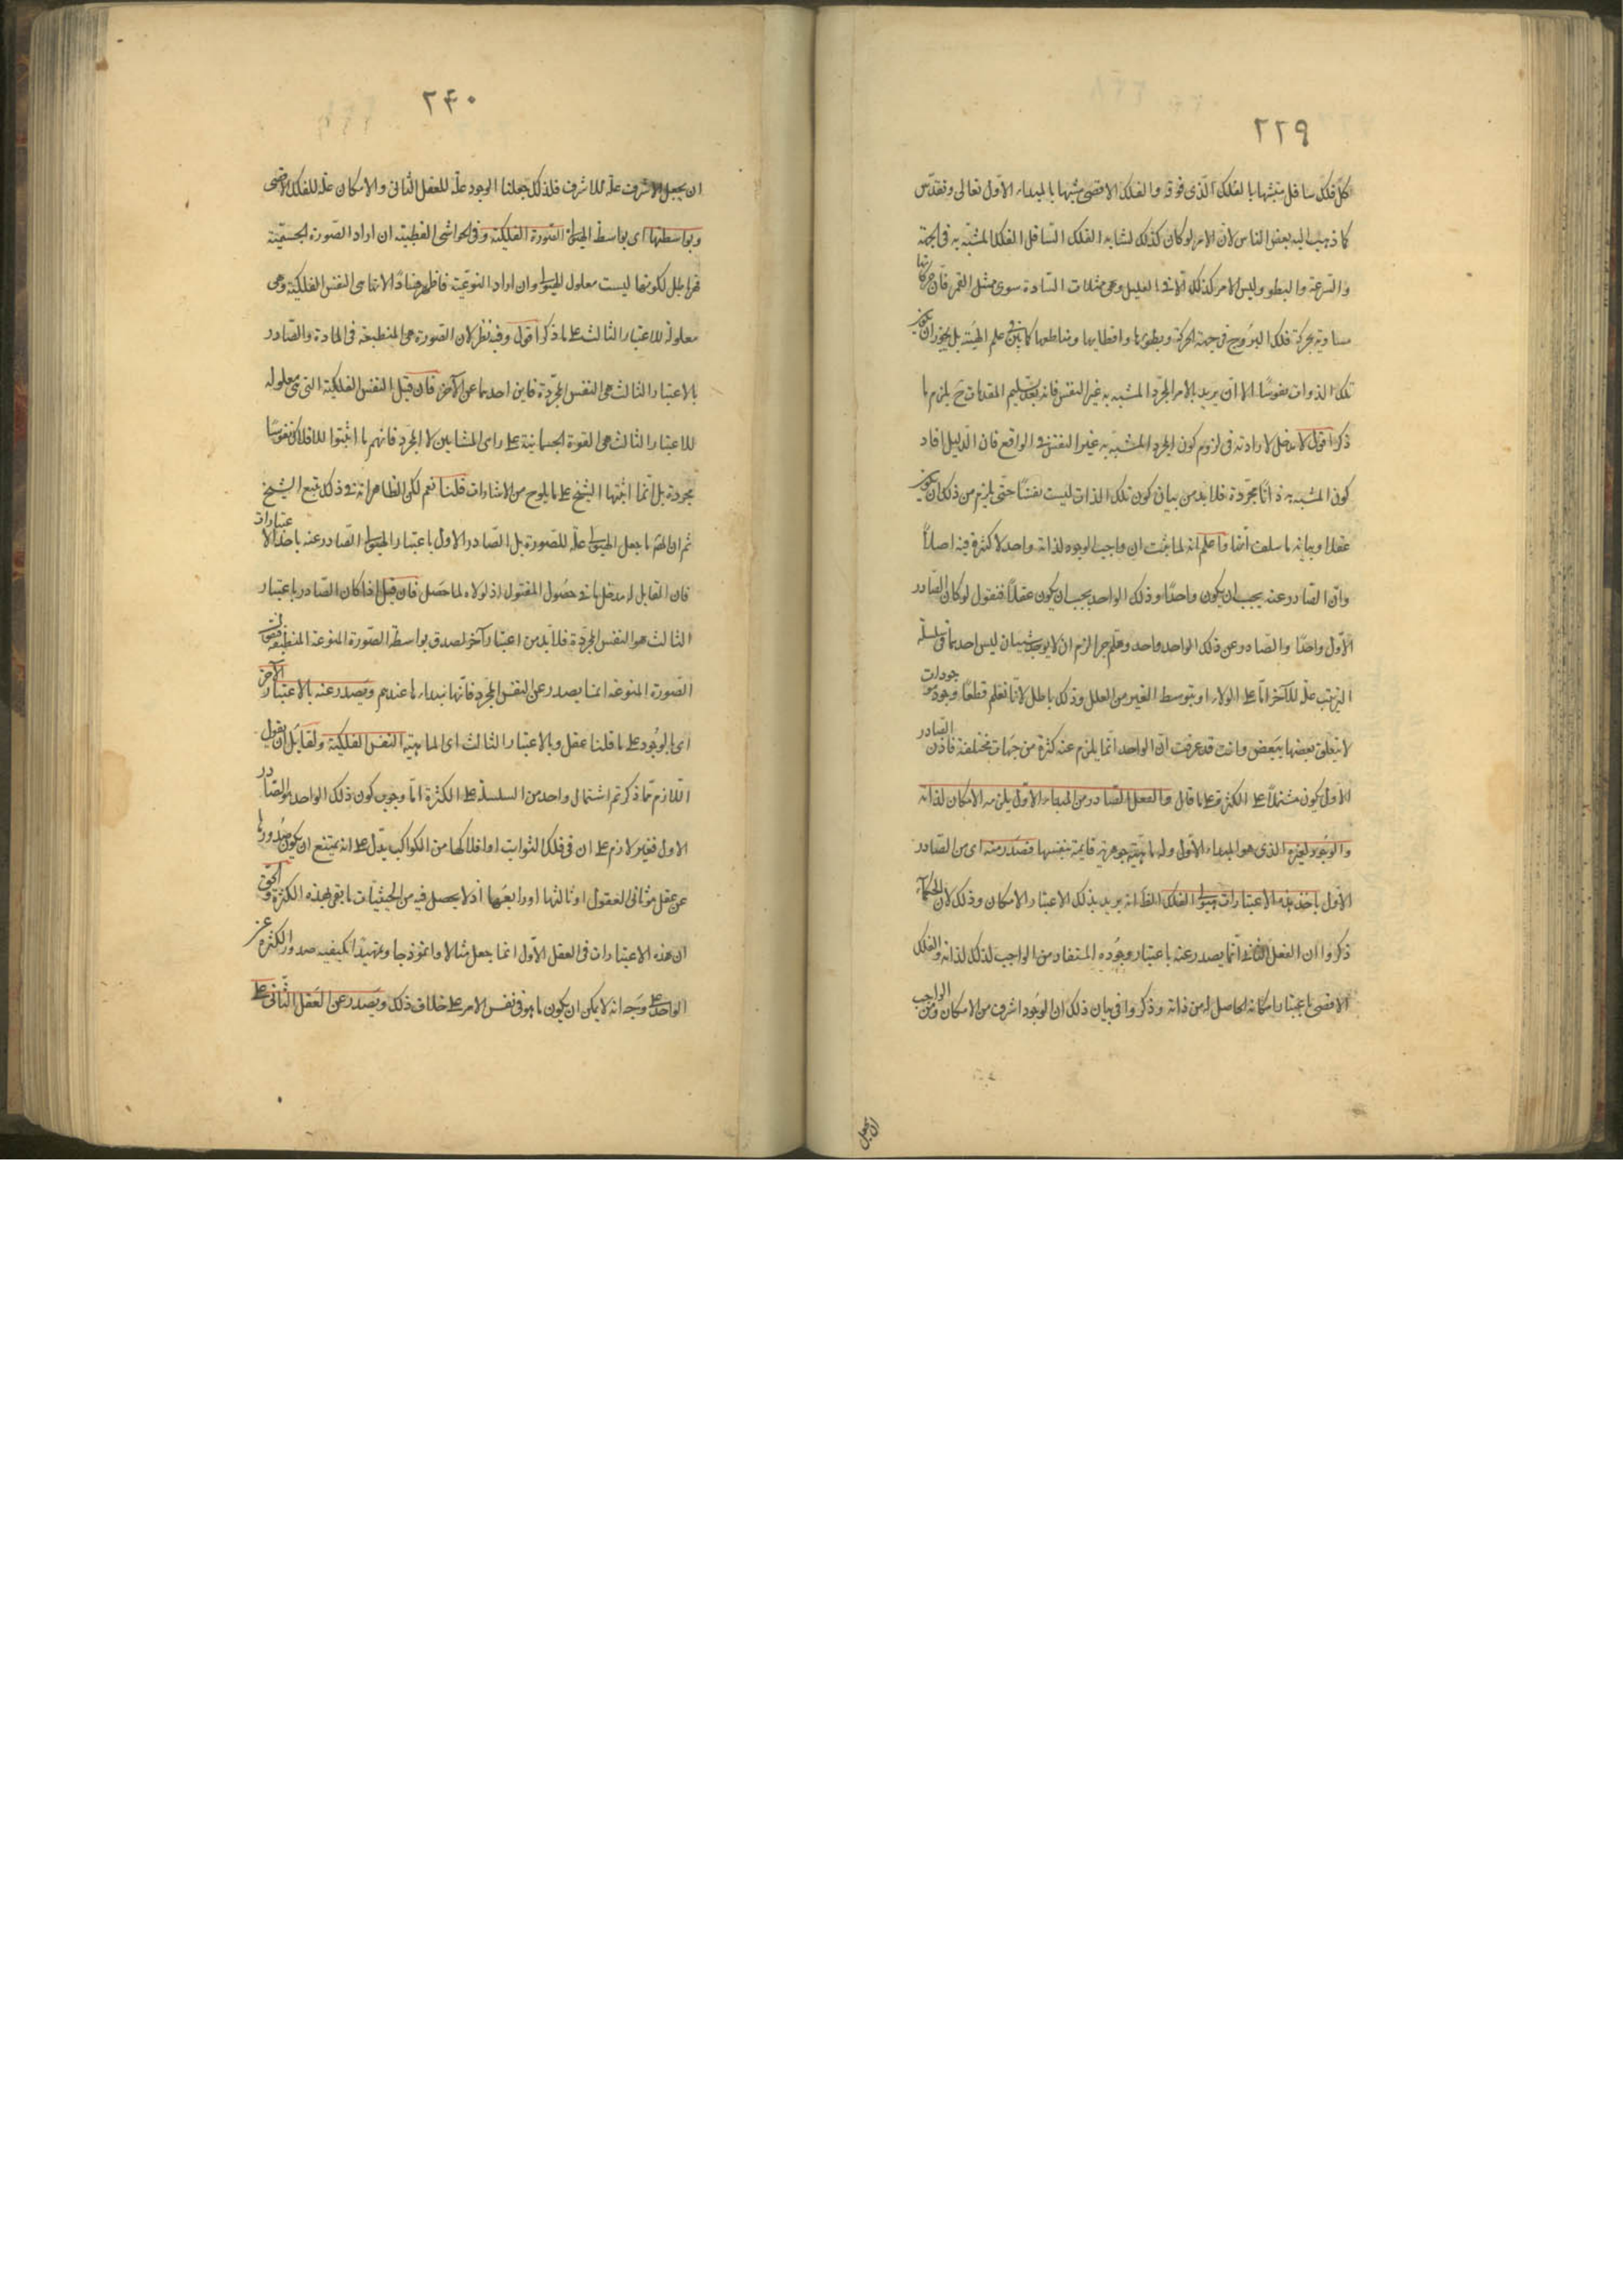 ٢٣٩
كل فلك سافل متشبها بالفلك الذى فوقه والفلك الاقصى متشبها بالمبداء الاول تعالى وتقدس
كما ذهب اليه بعض الناس لان الامر لو كان كذلك لشابه الفلك السافل الفلك المتشبه به فى الجهة
والسرعة والبطوء وليس الامر كذلك الا فى القليل وهى ممثلات السيارة سوى ممثل القمر فان حركاتها
مساوية بحركة فلك البروج فى جهة الحركة وبطوئها واقطابها ومناطقها كما بين فى علم الهيئة بل يجوز ان يكون
تلك الذوات نفوسا الا ان يريد بالامر المجرد المتشبه به غير النفس فانه بعد تسليم المقدمات ح يلزم ما
ذكر اقول لا مدخل لارادته فى لزوم كون المجرد المتشبه به غير النفس فى الواقع فان الدليل افاد
كون المتشبه به ذاتا مجردة فلا بد من بيان كون تلك الذات ليست نفسا حتى يلزم من ذلك ان يكون
عقلا وبيانه ما سلف انفا واعلم انه لما ثبت ان واجب الوجود لذاته واحد لا كثرة فيه اصلا
وان الصادر عنه يجب ان يكون واحدا وذلك الواحد يجب ان يكون عقلا فنقول لو كان الصادر
الاول واحدا والصادر عن ذلك الواحد واحد وهلم جرا لزم ان لا يوجد شيئان ليس احدهما فى سلسلة
الترتيب علة للآخر اما على الولاء او بتوسط الغير من العلل وذلك باطل لانا نعلم قطعا وجود موجودات
لا يتعلق بعضها ببعض وانت قد عرفت ان الواحد انما يلزم عنه كثرة من جهات مختلفة فاذن الصادر
الاول يكون مشتملا على الكثرة على ما قال والعقل الصادر من المبداء الاول يلزمه الامكان لذاته
والوجود لغيره الذى هو المبداء الاول وله ماهيته جوهرية قايمة بنفسها فصدر منه اى من الصادر
الاول باحد هذه الاعتبارات هيولى الفلك الظ انه يريد بذلك الاعتبار الامكان وذلك لان الحكماء
ذكروا ان العقل الثانى انما يصدر عنه باعتبار وجوده المستفاد من الواجب لذلك لذاته والفلك
الاقصى باعتبار امكانه الحاصل له من ذاته وذكروا فى بيان ذلك ان الوجود اشرف من الامكان ومن الواجب
ان يجعل
٢٤٠
ان يجعل الاشرف علة للاشرف فلذلك جعلنا الوجود علة للعقل الثانى والامكان علة للفلك الاقصى
وبواسطتها اى بواسطة الهيولى الصورة الفلكية وفى الحواشى القطبية ان اراد الصورة الجسمية
فهو باطل لكونها ليست معلول الهيولى وان اراد النوعية فاظهر فسادا لانها هى النفس الفلكية وهى
معلولة للاعتبار الثالث على ما ذكر اقول وفيه نظر لان الصورة هى المنطبعة فى المادة والصادر
بالاعتبار الثالث هى النفس المجردة فاين احدهما عن الآخر فان قيل النفس الفلكية التى هى معلوله
للاعتبار الثالث هى القوة الجسمانية على راى المشايين لا المجرد فانهم ما اثبتوا للافلاك نفوسا
مجردة بل انما اثبتها الشيخ على ما يلوح من الاشارات قلنا نعم لكن الظاهر انه فى ذلك تبع الشيخ
ثم ان المص ما جعل الهيولى علة للصورة بل الصادر الاول باعتبار الهيولى الصادر عنه باحد الاعتبارات
فان القابل له مدخل ما فى حصول المقبول اذ لولاه لما حصل فان قيل اذا كان الصادر باعتبار
الثالث هو النفس المجردة فلا بد من اعتبار آخر لصدق بواسطة الصورة المنوعة المنطبعة قلت
الصورة المنوعة انما يصدر عن النفس المجرد فانها مبداء لها عندهم ويصدر عنه بالاعتبار الآخر
اى الوجود على ما قلنا عقل وبالاعتبار الثالث اى الماهية النفس الفلكية ولقايل ان يقول
اللازم مما ذكرتم اشتمال واحد من السلسلة على الكثرة اما وجوب كون ذلك الواحد هو الصادر
الاول فغير لازم على ان فى فلك الثوابت او افلاكها من الكواكب يدل على انه يمتنع ان يكون صدورها
عن عقل هو ثانى العقول او ثالثها او رابعها اذ لا يحصل فيه من الحيثيات ما يفى لهذه الكثرة والحق
ان هذه الاعتبارات فى العقل الاول انما جعل مثالا وانموذجا وتمهيدا لكيفية صدور الكثرة عن
الواحد على وجه انه لا يمكن ان يكون ما هو فى نفس الامر على خلاف ذلك ويصدر عن العقل الثانى على